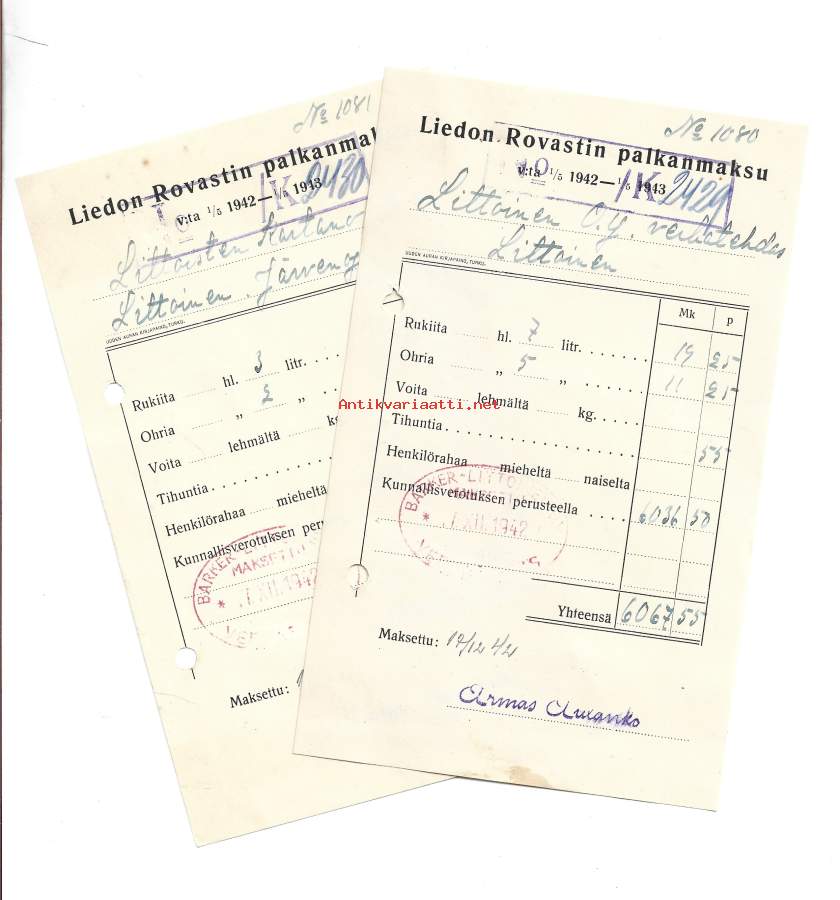 № 1081
Liedon Rovastin palkanmak
No /K 2430
v:ta 1/5 1942—1/5 1943
Littoisten Kartano
Littoinen. Järven
UUDEN AURAN KIRJAPAINO, TURKU.
Rukiita hl. 3 litr.
Ohria „ 2 „
Voita lehmältä kg
Tihuntia
Henkilörahaa mieheltä
Kunnallisverotuksen perus
BARKER-L
MAKSETTU
7.XII.1942
Maksettu:
№ 1080
Liedon Rovastin palkanmaksu
No /K 2429
v:ta 1/5 1942—1/5 1943
Littoinen O.Y. verkatehdas
Littoinen
UUDEN AURAN KIRJAPAINO, TURKU.
Mk p
Rukiita hl. 7 litr. 19 25
Ohria „ 5 „ 11 25
Voita lehmältä kg.
Tihuntia 55
Henkilörahaa mieheltä naiselta
Kunnallisverotuksen perusteella 6036 50
BARKER-LITTO
7.XII.1942
Yhteensä 6067 55
Maksettu: 12/12 42
Armas Auranko
Antikvariaatti.net